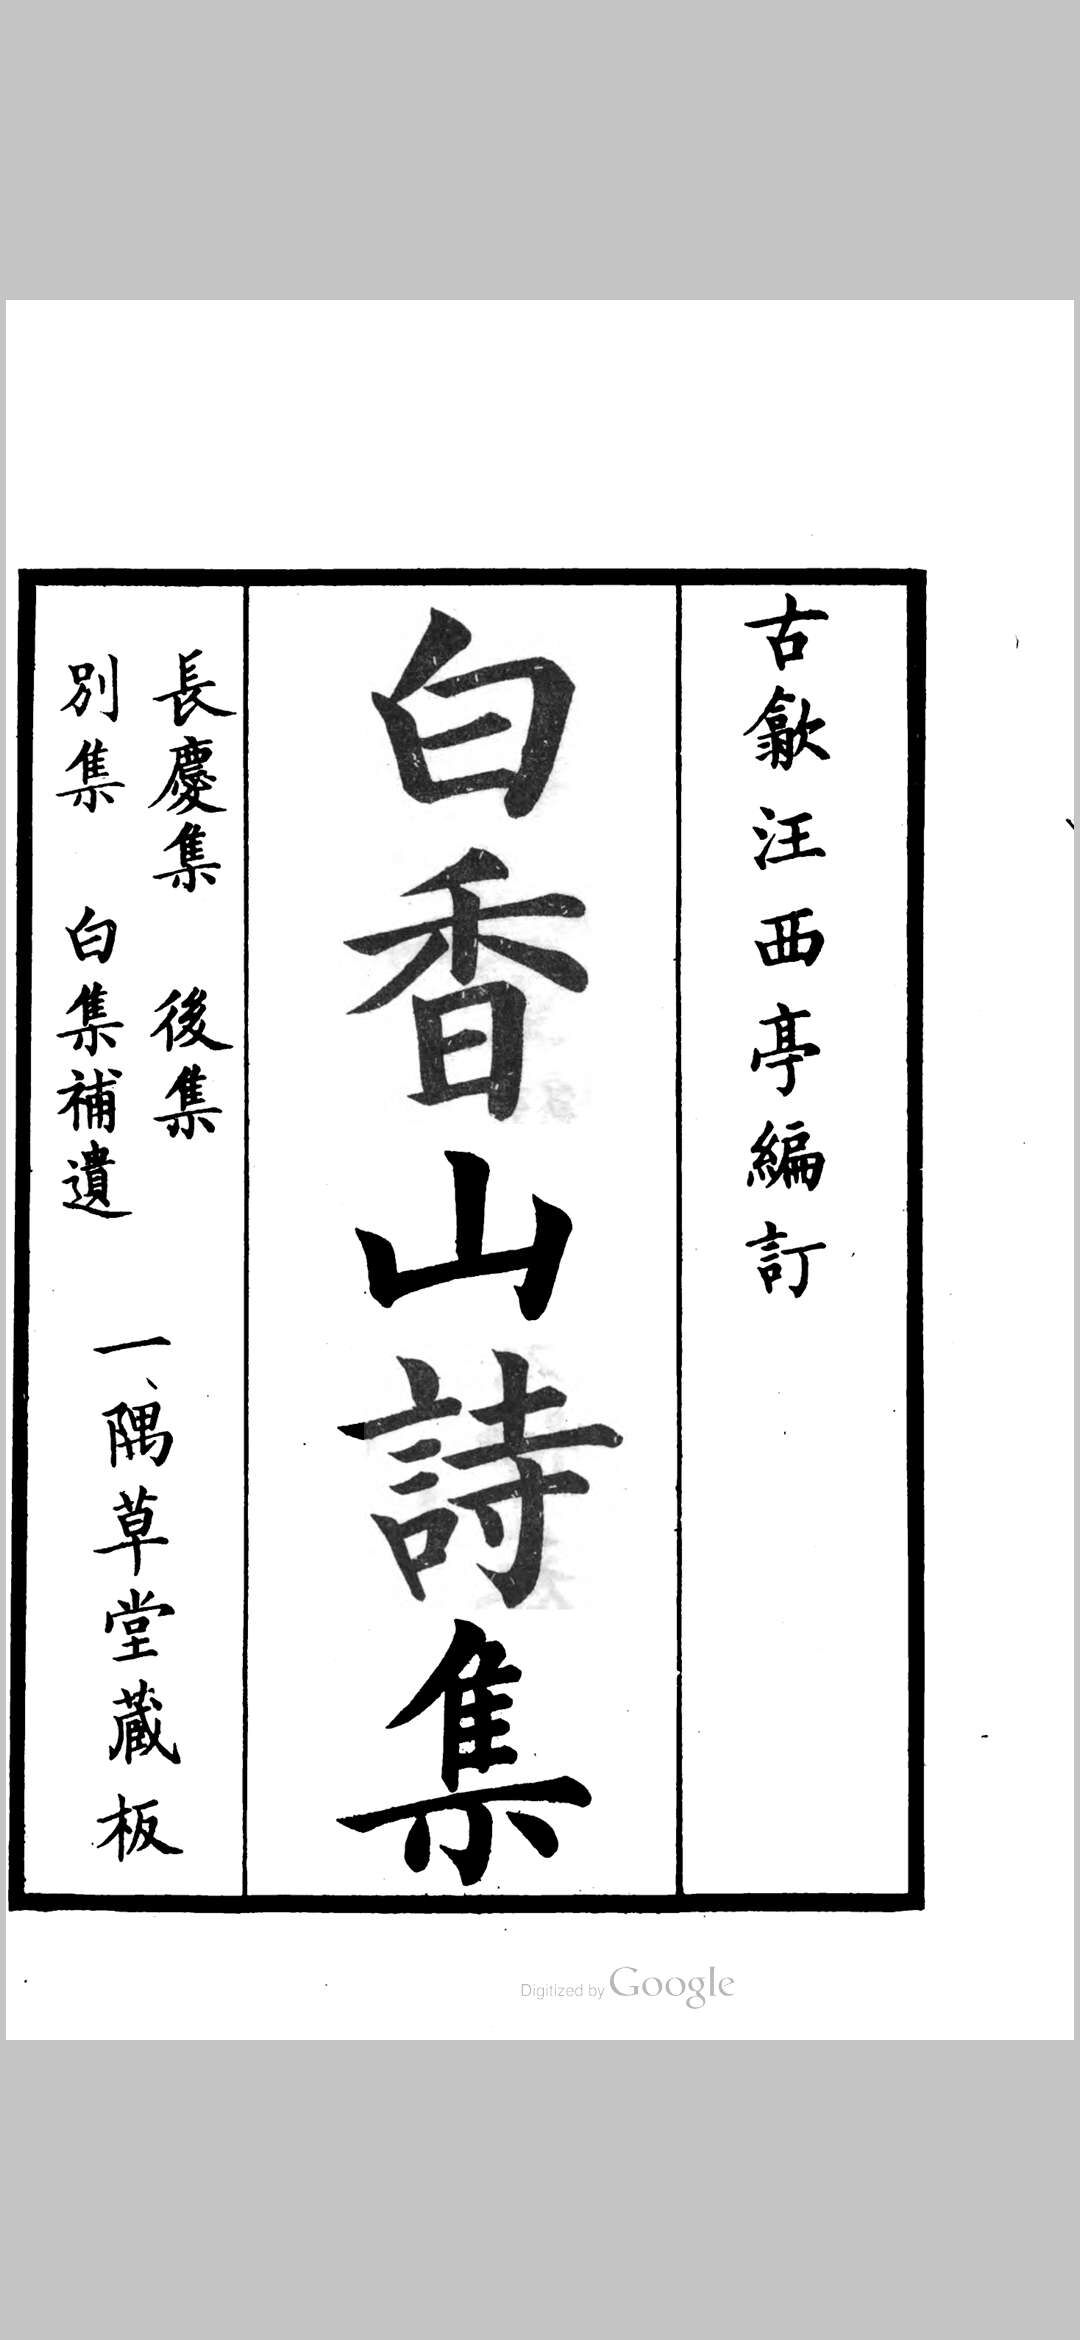 古歙汪西亭編訂
白香山詩集
長慶集 後集
別集 白集補遺
一隅草堂藏板
Digitized by Google